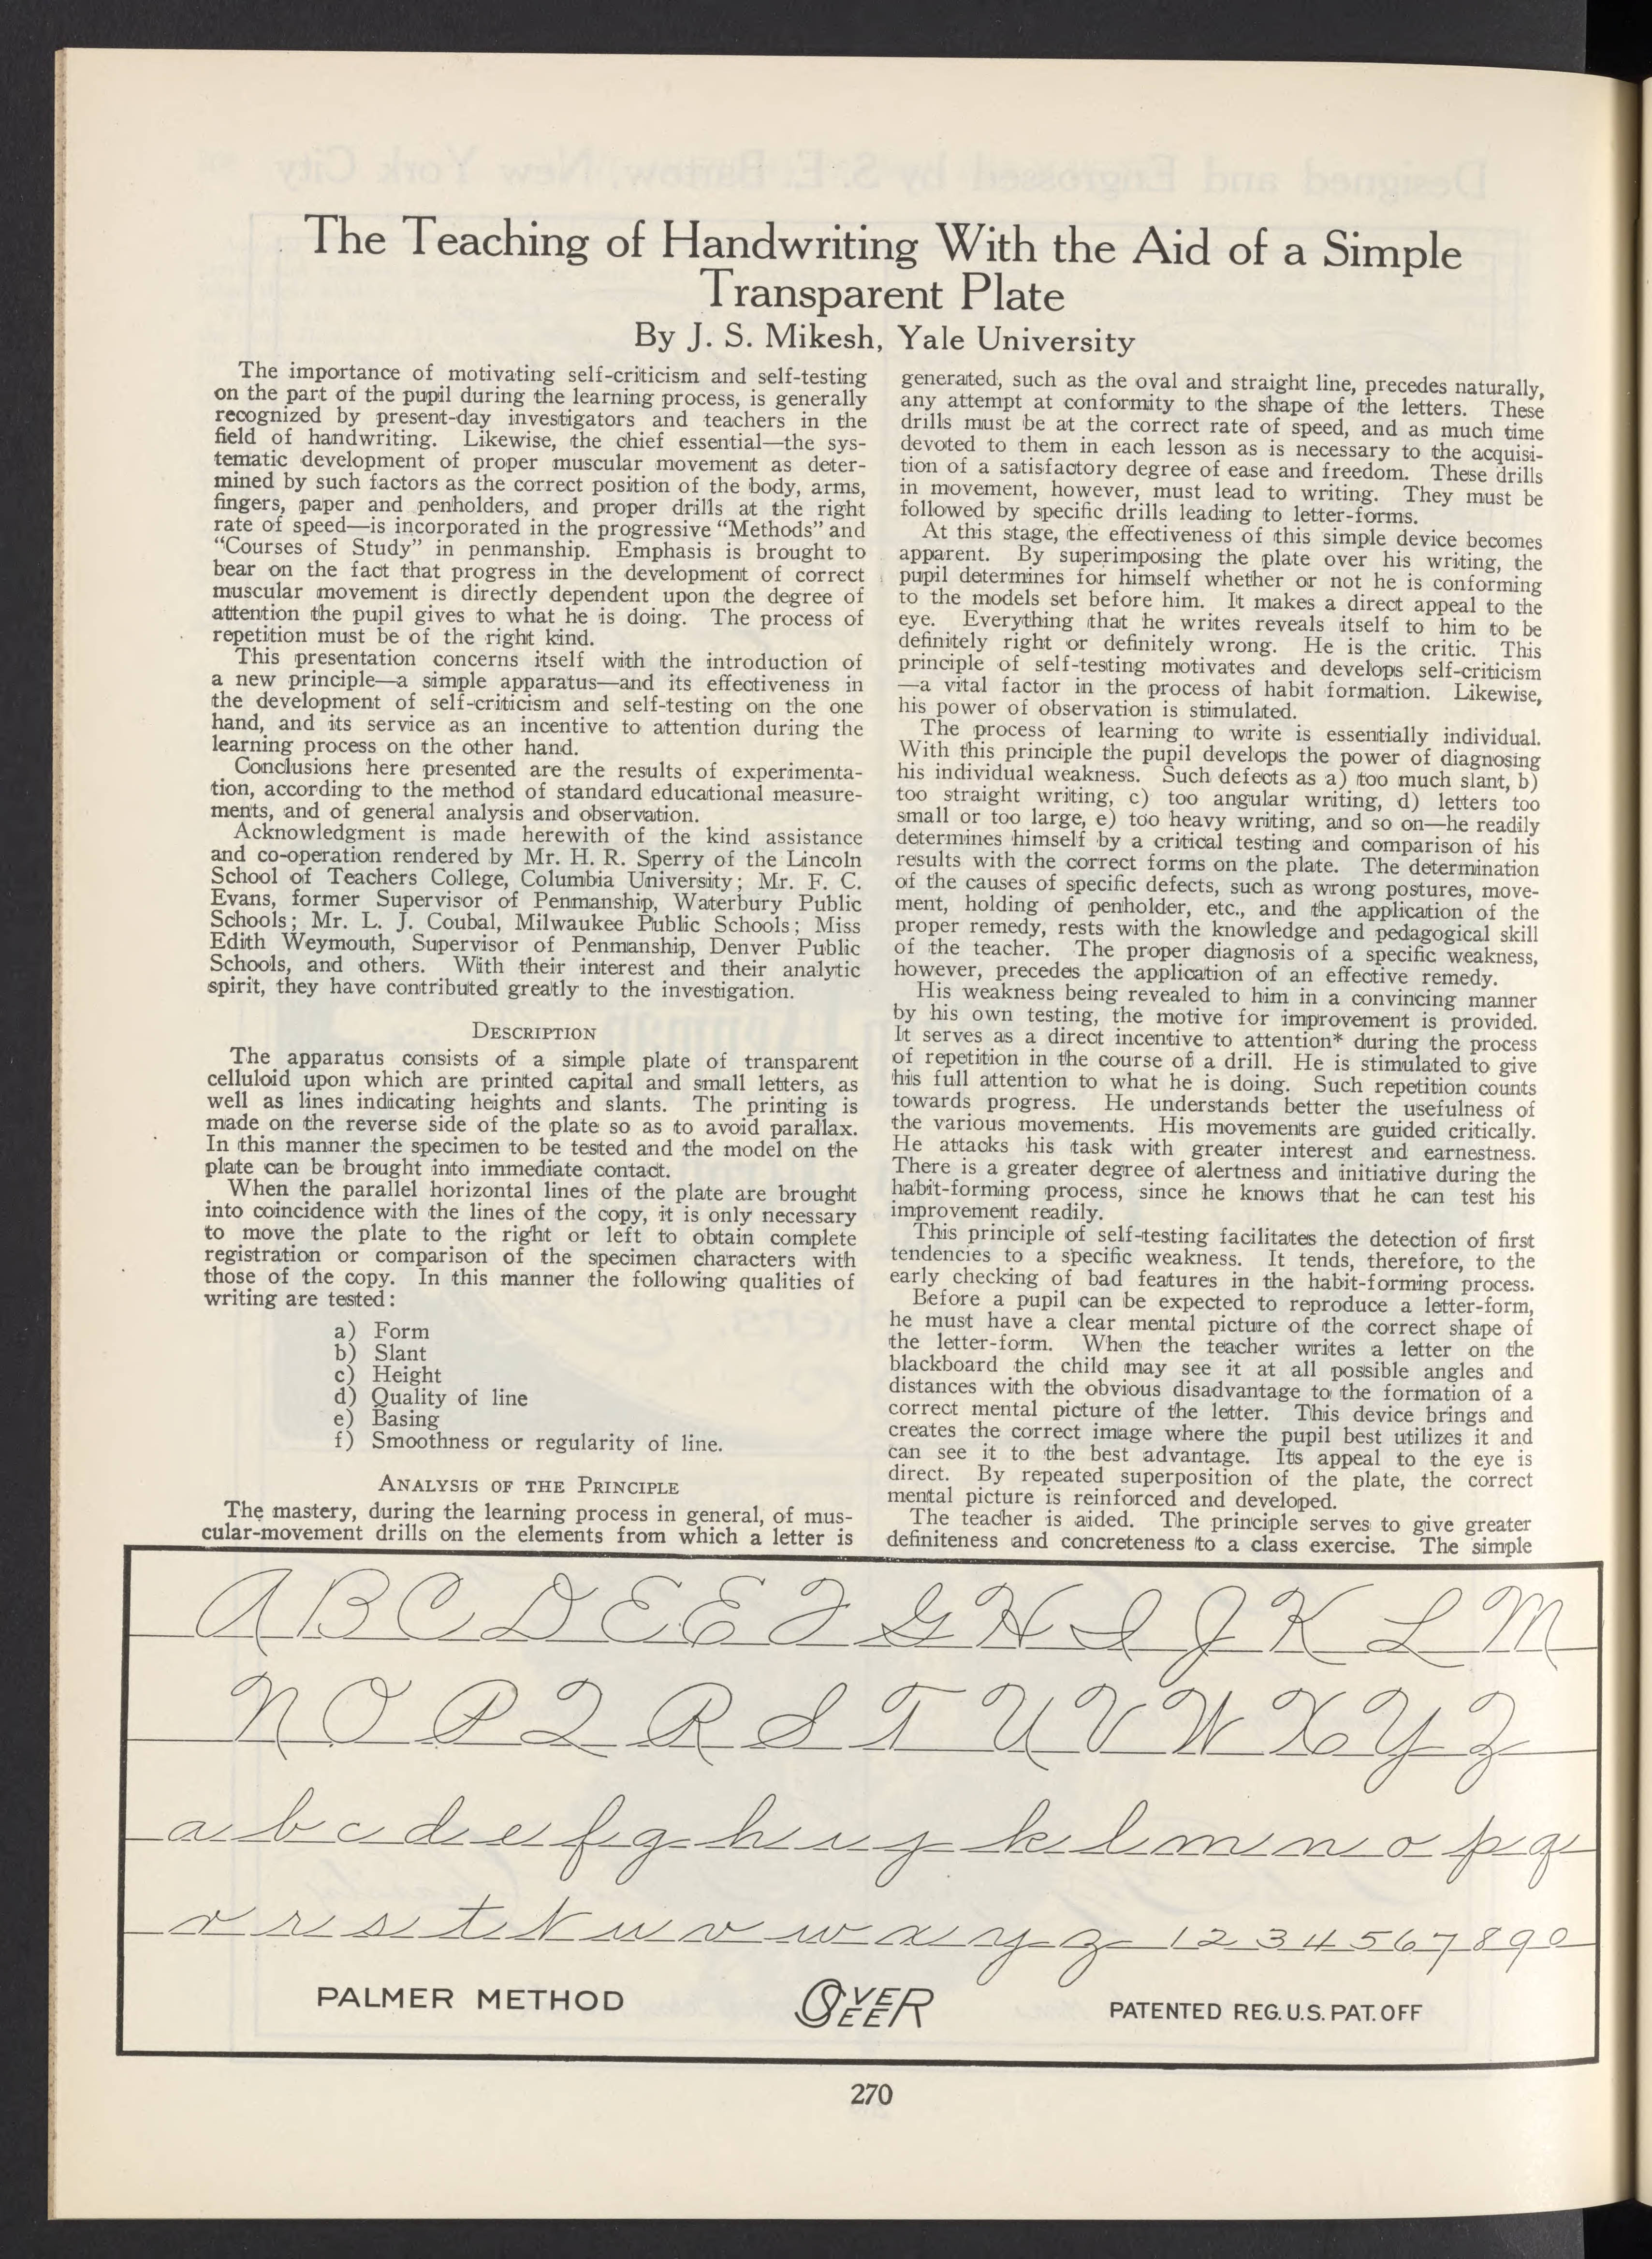 The Teaching of Handwriting With the Aid of a Simple
Transparent Plate
By J. S. Mikesh, Yale University
The importance of motivating self-criticism and self-testing
on the part of the pupil during the learning process, is generally
recognized by present-day investigators and teachers in the
field of handwriting. Likewise, the chief essential—the sys-
tematic development of proper muscular movement as deter-
mined by such factors as the correct position of the body, arms,
fingers, paper and penholders, and proper drills at the right
rate of speed—is incorporated in the progressive "Methods" and
"Courses of Study" in penmanship. Emphasis is brought to
bear on the fact that progress in the development of correct
muscular movement is directly dependent upon the degree of
attention the pupil gives to what he is doing. The process of
repetition must be of the right kind.
This presentation concerns itself with the introduction of
a new principle—a simple apparatus—and its effectiveness in
the development of self-criticism and self-testing on the one
hand, and its service as an incentive to attention during the
learning process on the other hand.
Conclusions here presented are the results of experimenta-
tion, according to the method of standard educational measure-
ments, and of general analysis and observation.
Acknowledgment is made herewith of the kind assistance
and co-operation rendered by Mr. H. R. Sperry of the Lincoln
School of Teachers College, Columbia University; Mr. F. C.
Evans, former Supervisor of Penmanship, Waterbury Public
Schools; Mr. L. J. Coubal, Milwaukee Public Schools; Miss
Edith Weymouth, Supervisor of Penmanship, Denver Public
Schools, and others. With their interest and their analytic
spirit, they have contributed greatly to the investigation.
DESCRIPTION
The apparatus consists of a simple plate of transparent
celluloid upon which are printed capital and small letters, as
well as lines indicating heights and slants. The printing is
made on the reverse side of the plate so as to avoid parallax.
In this manner the specimen to be tested and the model on the
plate can be brought into immediate contact.
When the parallel horizontal lines of the plate are brought
into coincidence with the lines of the copy, it is only necessary
to move the plate to the right or left to obtain complete
registration or comparison of the specimen characters with
those of the copy. In this manner the following qualities of
writing are tested:
a) Form
b) Slant
c) Height
d) Quality of line
e) Basing
f) Smoothness or regularity of line.
ANALYSIS OF THE PRINCIPLE
The mastery, during the learning process in general, of mus-
cular-movement drills on the elements from which a letter is
generated, such as the oval and straight line, precedes naturally,
any attempt at conformity to the shape of the letters. These
drills must be at the correct rate of speed, and as much time
devoted to them in each lesson as is necessary to the acquisi-
tion of a satisfactory degree of ease and freedom. These drills
in movement, however, must lead to writing. They must be
followed by specific drills leading to letter-forms.
At this stage, the effectiveness of this simple device becomes
apparent. By superimposing the plate over his writing, the
pupil determines for himself whether or not he is conforming
to the models set before him. It makes a direct appeal to the
eye. Everything that he writes reveals itself to him to be
definitely right or definitely wrong. He is the critic. This
principle of self-testing motivates and develops self-criticism
—a vital factor in the process of habit formation. Likewise,
his power of observation is stimulated.
The process of learning to write is essentially individual.
With this principle the pupil develops the power of diagnosing
his individual weakness. Such defects as a) too much slant, b)
too straight writing, c) too angular writing, d) letters too
small or too large, e) too heavy writing, and so on—he readily
determines himself by a critical testing and comparison of his
results with the correct forms on the plate. The determination
of the causes of specific defects, such as wrong postures, move-
ment, holding of penholder, etc., and the application of the
proper remedy, rests with the knowledge and pedagogical skill
of the teacher. The proper diagnosis of a specific weakness,
however, precedes the application of an effective remedy.
His weakness being revealed to him in a convincing manner
by his own testing, the motive for improvement is provided.
It serves as a direct incentive to attention* during the process
of repetition in the course of a drill. He is stimulated to give
his full attention to what he is doing. Such repetition counts
towards progress. He understands better the usefulness of
the various movements. His movements are guided critically.
He attacks his task with greater interest and earnestness.
There is a greater degree of alertness and initiative during the
habit-forming process, since he knows that he can test his
improvement readily.
This principle of self-testing facilitates the detection of first
tendencies to a specific weakness. It tends, therefore, to the
early checking of bad features in the habit-forming process.
Before a pupil can be expected to reproduce a letter-form,
he must have a clear mental picture of the correct shape of
the letter-form. When the teacher writes a letter on the
blackboard the child may see it at all possible angles and
distances with the obvious disadvantage to the formation of a
correct mental picture of the letter. This device brings and
creates the correct image where the pupil best utilizes it and
can see it to the best advantage. Its appeal to the eye is
direct. By repeated superposition of the plate, the correct
mental picture is reinforced and developed.
The teacher is aided. The principle serves to give greater
definiteness and concreteness to a class exercise. The simple
A B C D E E F G H I J K L M
N O P Q R S T U V W X Y Z
a b c d e f g h i j k l m n o p q
r r s t t u v w x y z 1 2 3 4 5 6 7 8 9 0
PALMER METHOD
OVERSEER
PATENTED REG. U.S. PAT. OFF
270